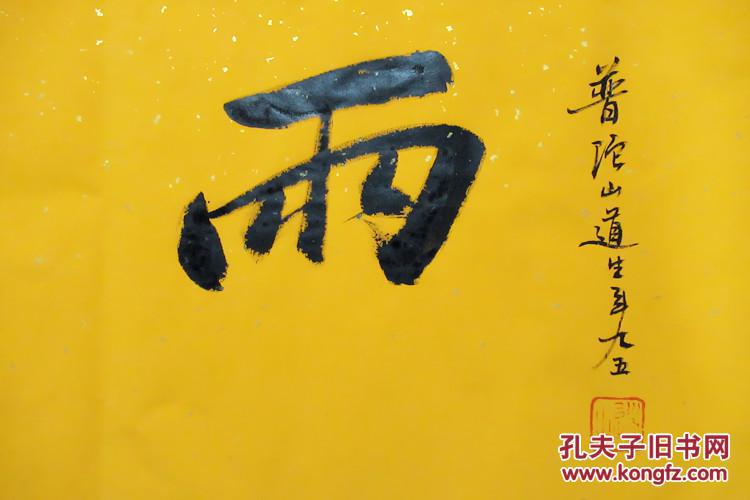 雨
普陀山道生年九五
孔夫子旧书网
www.kongfz.com